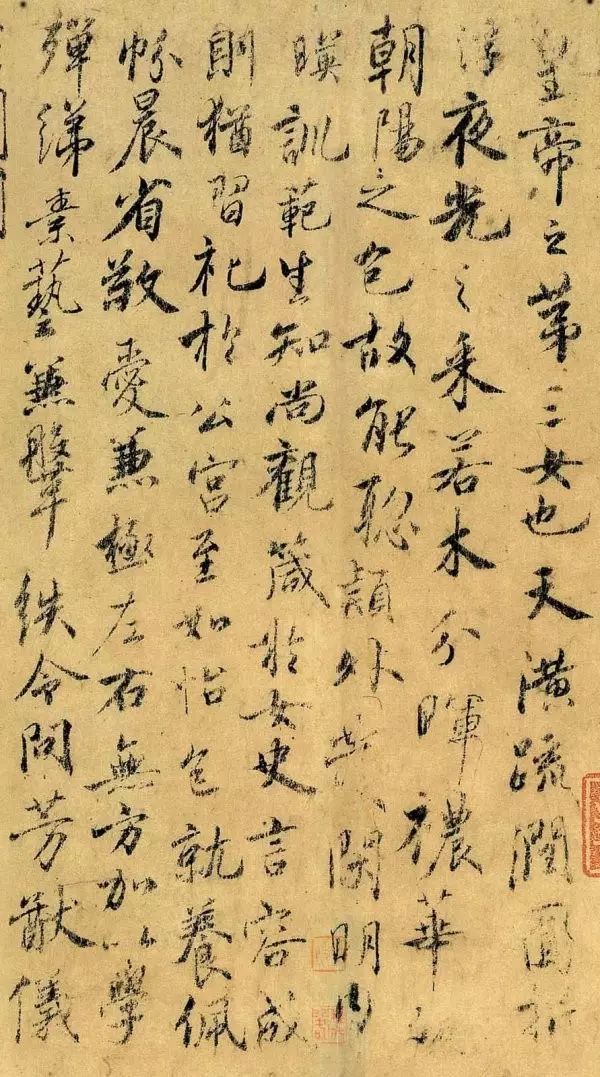 皇帝之苐三女也天潢疏潤圓折
浮夜光之采若木分暉穠華
朝陽之色故能聡頴外發閑明內
暎訓範生知尚觀箴於女史言容成
則猶習礼於公宮至如怡色就養佩
帉晨省敬愛兼極左右無方加以學
殫綈素藝兼鞶紩令問芳猷儀